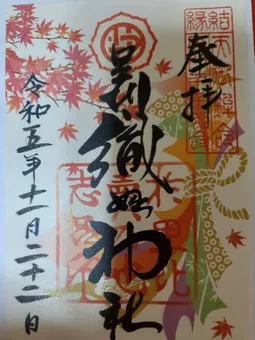 奉拝
足利織姫神社
令和五年十一月二十二日